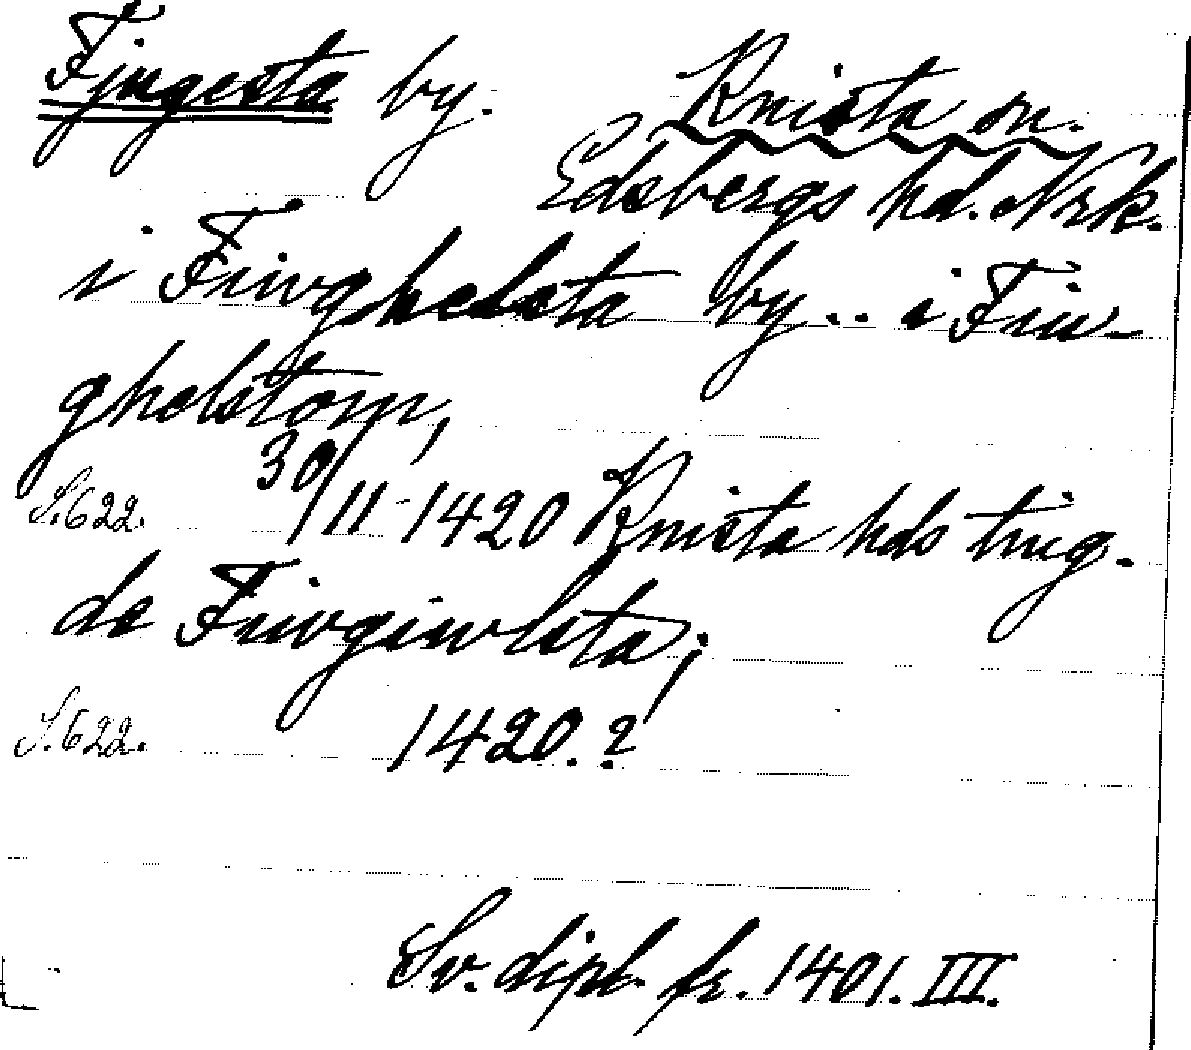 Fjugesta by. Knista sn.
Edsbergs hd. Nrk.
i Fiwghelsta by .. i Fiu-
ghelstom,
S. 622. 30/11 1420 Knista hds ting.
de Fiwgiwlsta;
S. 622. 1420.?
Sv. dipl. fr. 1401. III.